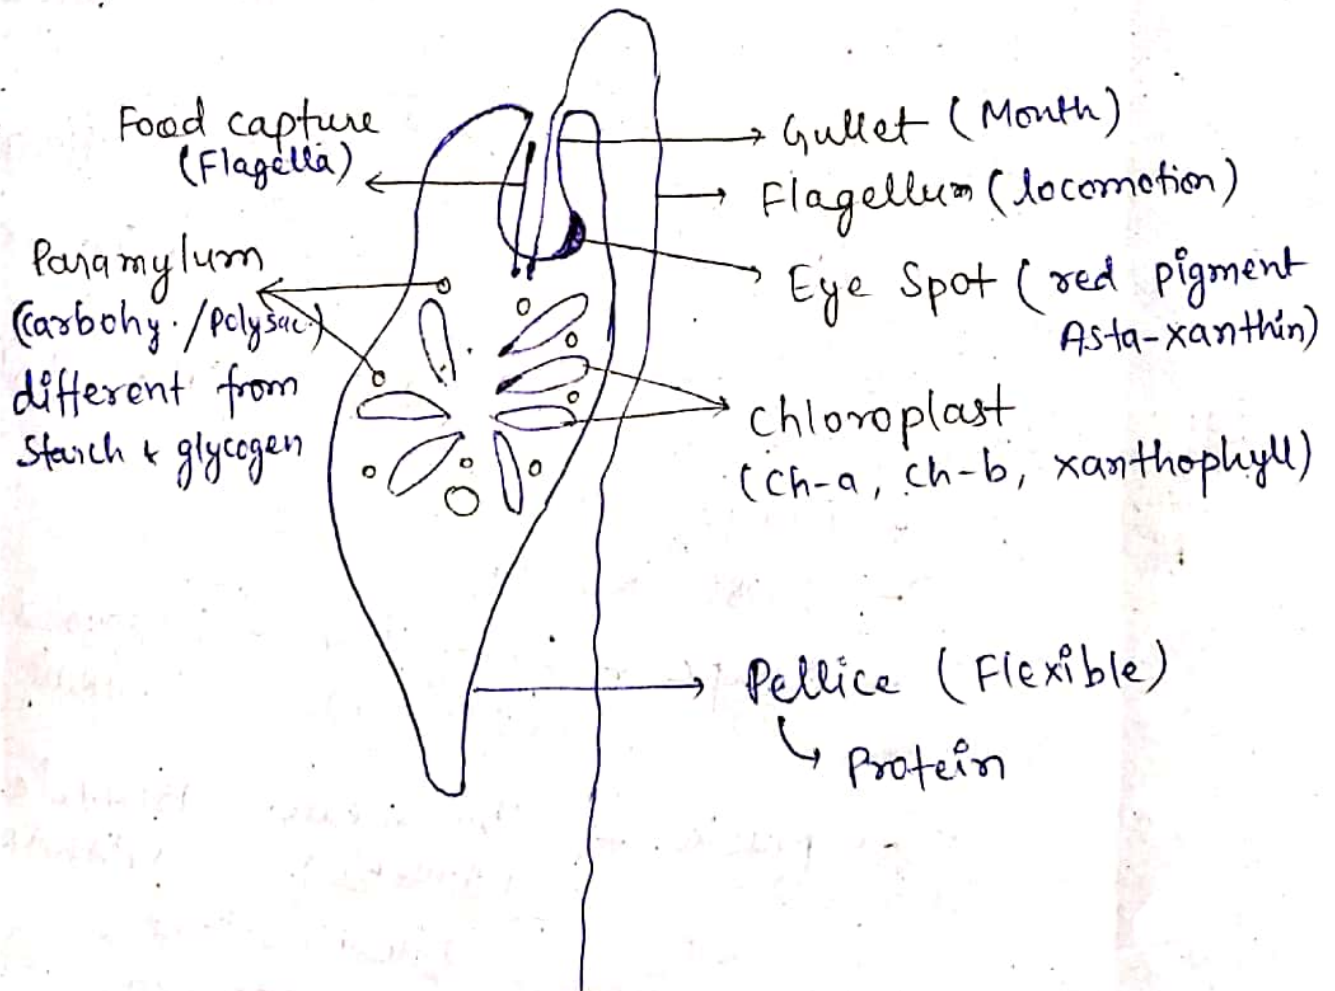 Food capture
(Flagella)
Paramylum
(Carbohy./Polysac.)
different from
Starch & glycogen
Gullet (Month)
Flagellum (locomotion)
Eye Spot (red pigment
Asta-xanthin)
Chloroplast
(Ch-a, Ch-b, xanthophyll)
Pellice (Flexible)
Protein